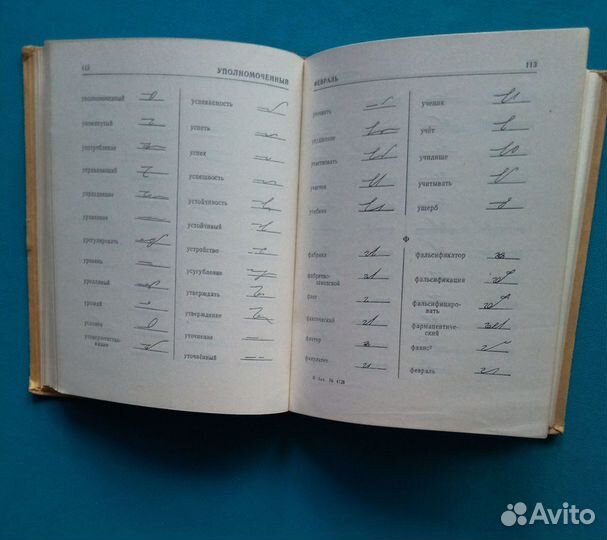 112 УПОЛНОМОЧЕННЫЙ
уполномоченный
упомянутый
употребление
управляющий
упразднение
уравнение
урегулировать
уровень
уродливый
урожай
усилие
усовершенствование
успеваемость
успеть
успех
успешность
устойчивость
устойчивый
устройство
усугубление
утверждать
утверждение
уточнение
уточнённый
ФЕВРАЛЬ 113
ухудшение
участвовать
участок
учебник
ученик
учёт
училище
учитывать
ущерб
Ф
фабрика
фабрично-
заводской
факт
фактический
фактор
факультет
фальсификатор
фальсификация
фальсифициро-
вать
фармацевтиче-
ский
февраль
Avito